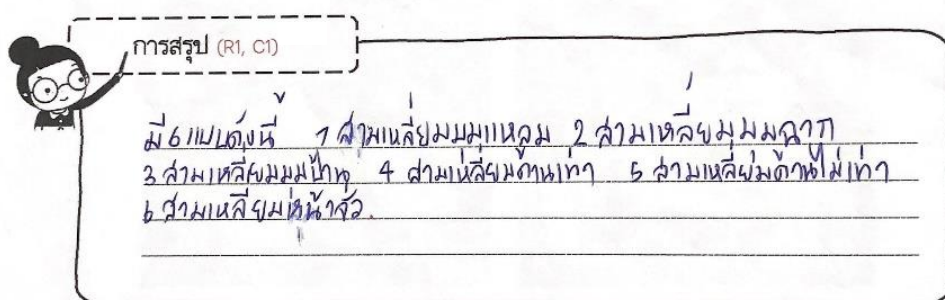 การสรุป (R1, C1)
มี 6 แบบดังนี้ 1 สามเหลี่ยมมุมแหลม 2 สามเหลี่ยมมุมฉาก
3 สามเหลี่ยมมุมป้าน 4 สามเหลี่ยมด้านเท่า 5 สามเหลี่ยมด้านไม่เท่า
6 สามเหลี่ยมหน้าจั่ว.